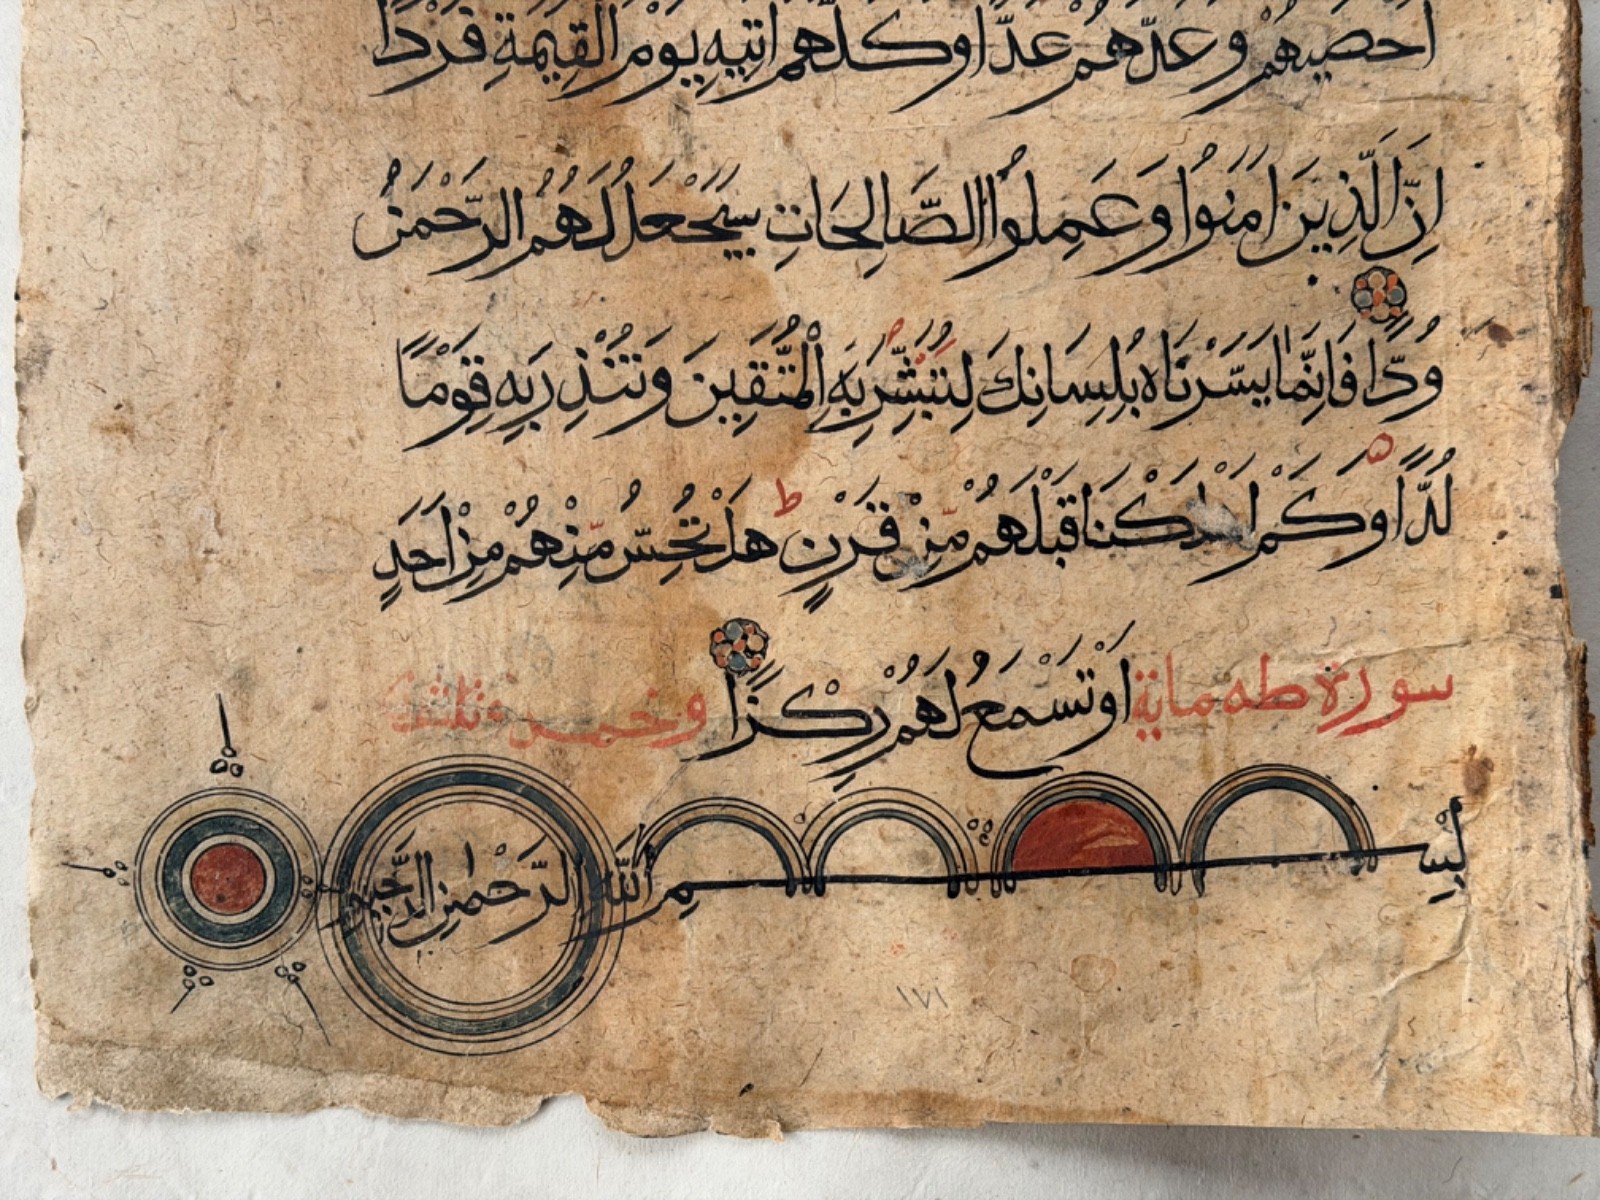 احصيهم وعدّهم عدّا وكلّهم اتيه يوم القيمة فردا
اِنَّ الَّذِينَ اٰمَنُوا وَعَمِلُوا الصَّالِحَاتِ سَيَجْعَلُ لَهُمُ الرَّحْمٰنُ
وُدًّا فَاِنَّمَا يَسَّرْنَاهُ بِلِسَانِكَ لِتُبَشِّرَ بِهِ الْمُتَّقِينَ وَتُنْذِرَ بِهِ قَوْمًا
لُدًّا وَكَمْ اَهْلَكْنَا قَبْلَهُمْ مِّنْ قَرْنٍ ط هَلْ تُحِسُّ مِنْهُمْ مِنْ اَحَدٍ
سورة طه مائة اَوْ تَسْمَعُ لَهُمْ رِكْزًا وخمس وثلثون
بِسْمِ اللّٰهِ الرَّحْمٰنِ الرَّحِيمِ
١٧١